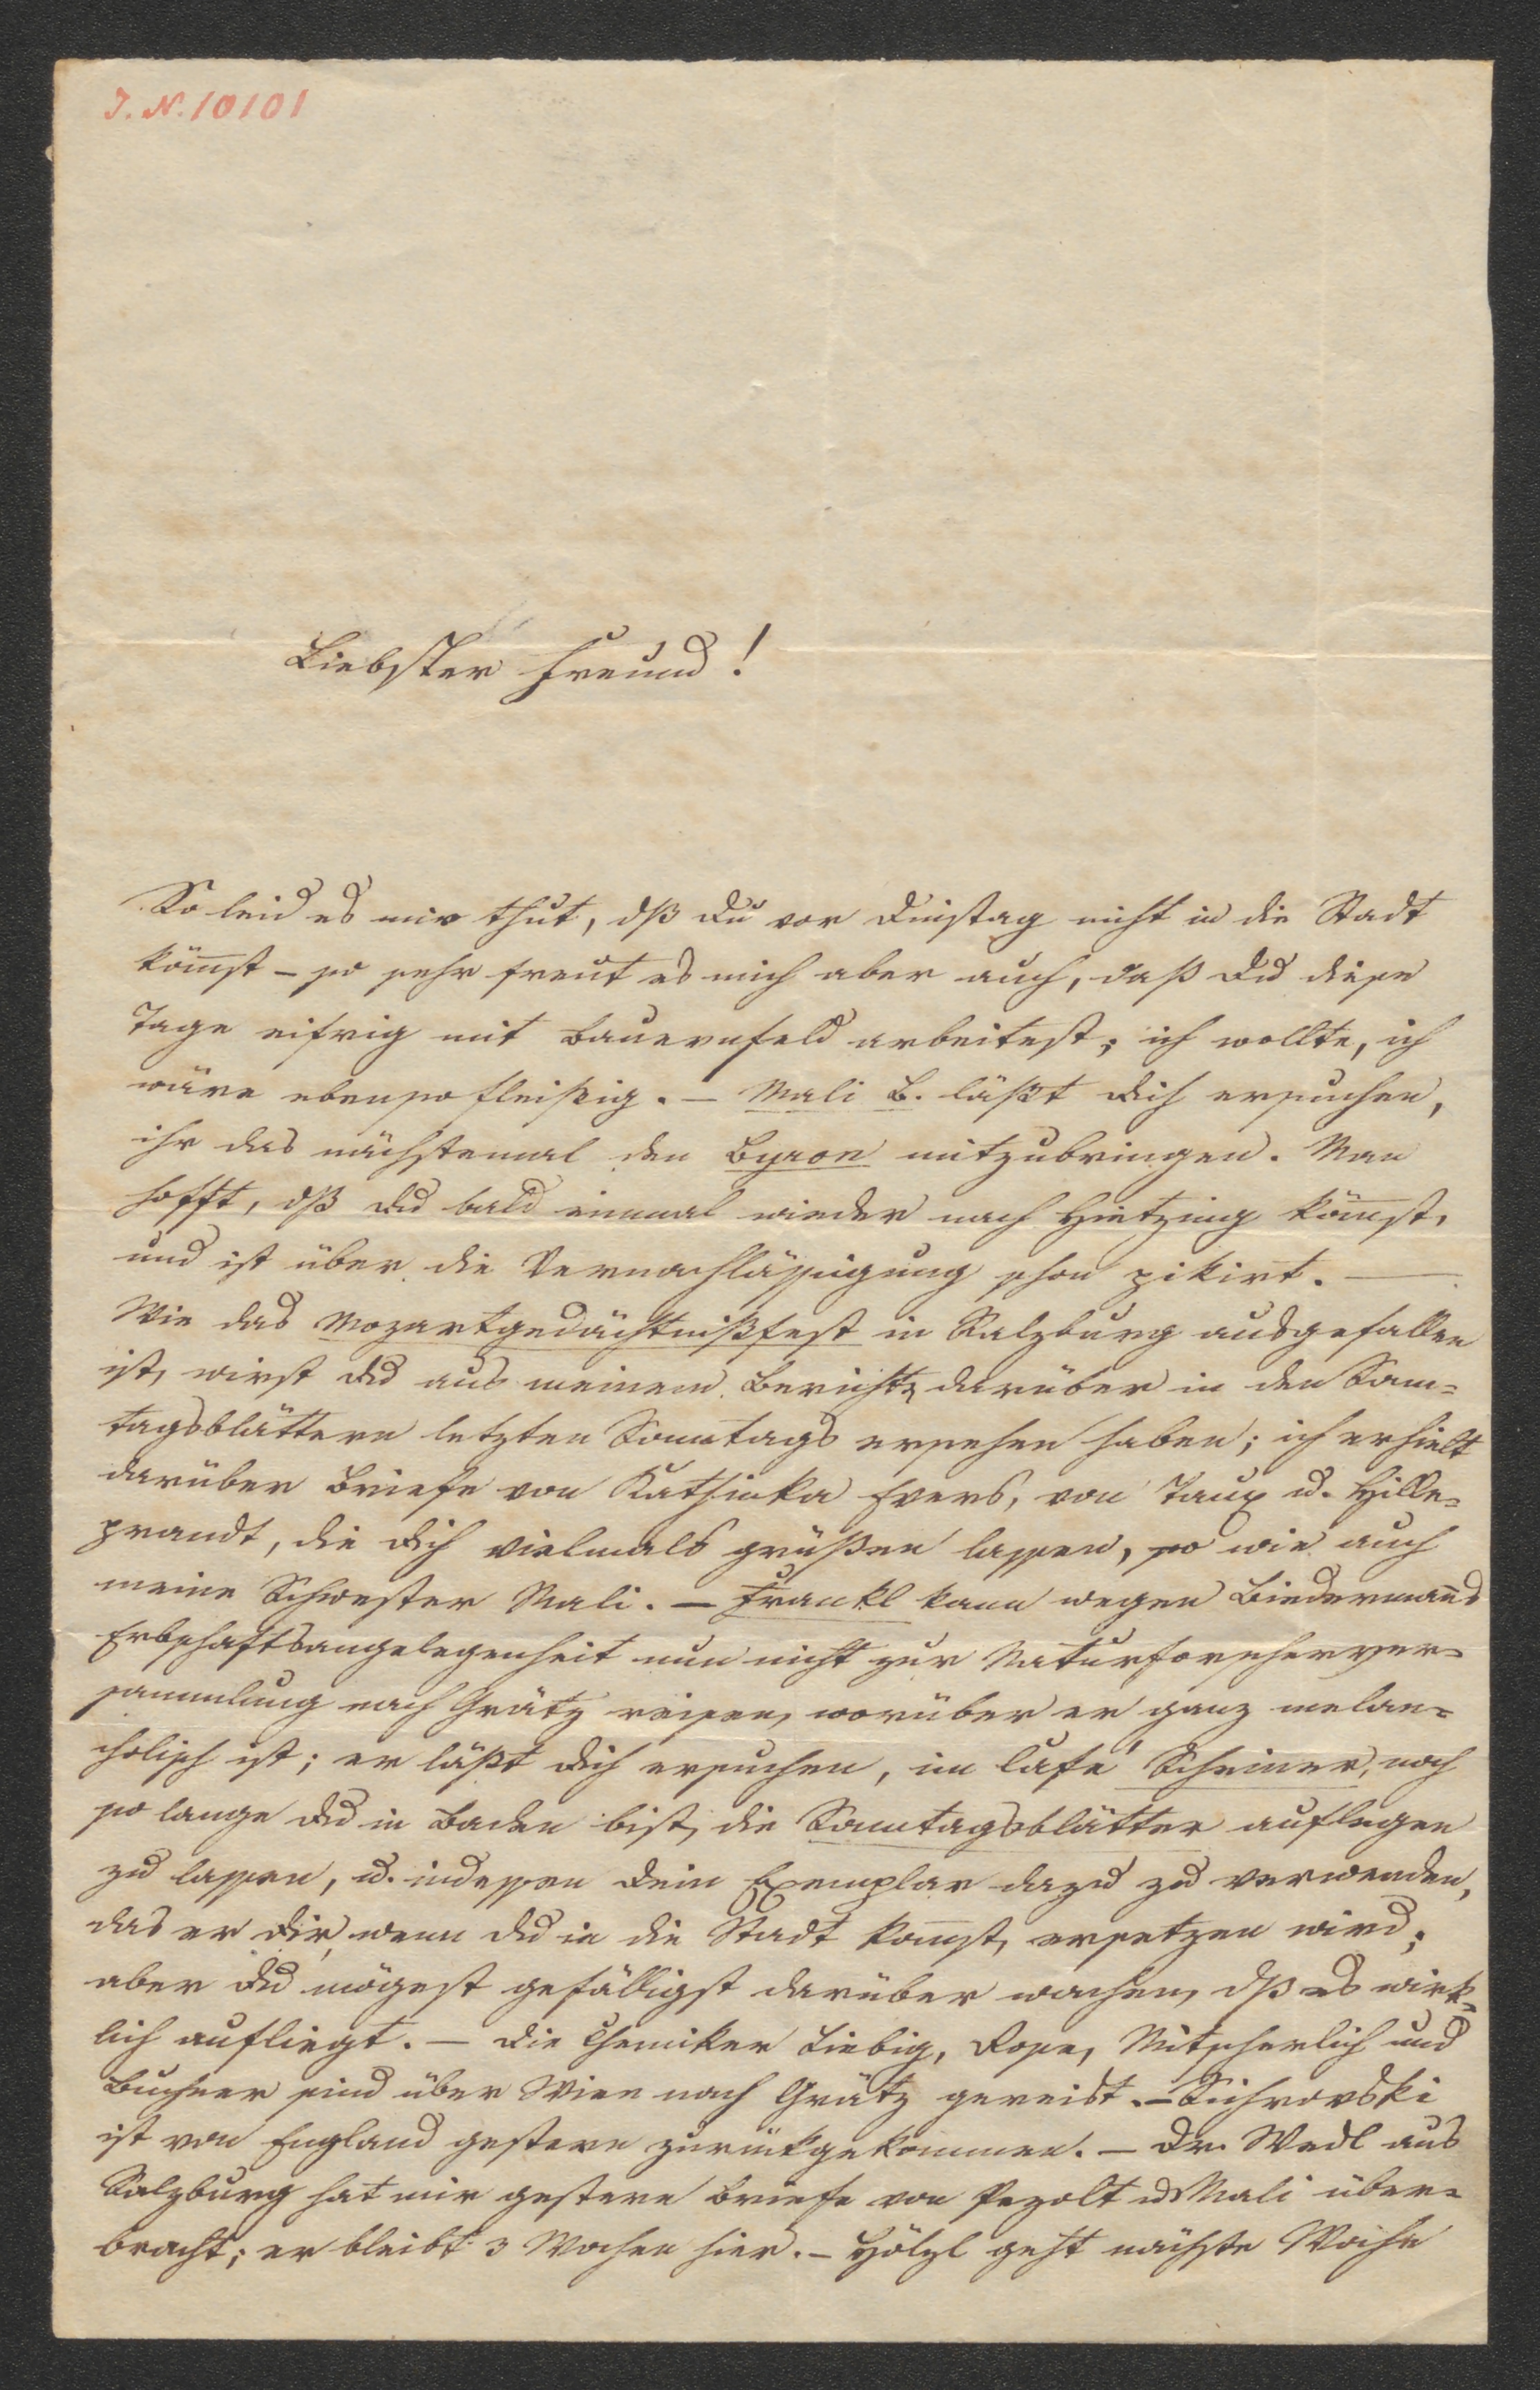 J. N. 10101
Liebster Freund!
So leid es mir thut, dß Du vor Dinstag nicht in die Stadt
köm̄st – so sehr freut es mich aber auch, daß Du diese
Tage eifrig mit Bauernfeld arbeitest; ich wollte, ich
wäre ebenso fleißig. – Mali B. läßt Dich ersuchen,
ihr das nächstemal den Byron mitzubringen. Man
hofft, dß Du bald einmal wieder nach Hietzing köm̄st,
und ist über die Vernachlässigung schon pikirt. —
Wie das Mozartgedächtnißfest in Salzburg ausgefallen
ist, wirst Du aus meinem Berichte darüber in den Son̄-
tagsblättern letzten Sonntags ersehen haben; ich erhielt
darüber Briefe von Kathinka Evers, von Taux u. Hille-
prandt, die Dich vielmals grüßen lassen, so wie auch
meine Schwester Mali. – Frankl kann wegen Biederman̄s
Erbschaftsangelegenheit nun nicht zur Naturforscherver-
sammlung nach Grätz reisen, worüber er ganz melan-
cholisch ist; er läßt Dich ersuchen, im Café Scheiner, noch
so lange Du in Baden bist, die Son̄tagsblätter auflegen
zu lassen, u. indessen Dein Exemplar dazu zu verwenden,
das er Dir, wenn Du in die Stadt kom̄st, ersetzen wird;
aber Du mögest gefälligst darüber wachen, dß es wirk-
lich aufliegt. – Die Chemiker Liebig, Rose, Mitscherlich und
Buchner sind über Wien nach Grätz gereist. – Sichrovski
ist von England gestern zurückgekommen. – Dr. Wedl aus
Salzburg hat mir gestern Briefe von Pezolt u Mali über-
bracht; er bleibt 3 Wochen hier. – Hölzl geht nächste Woche